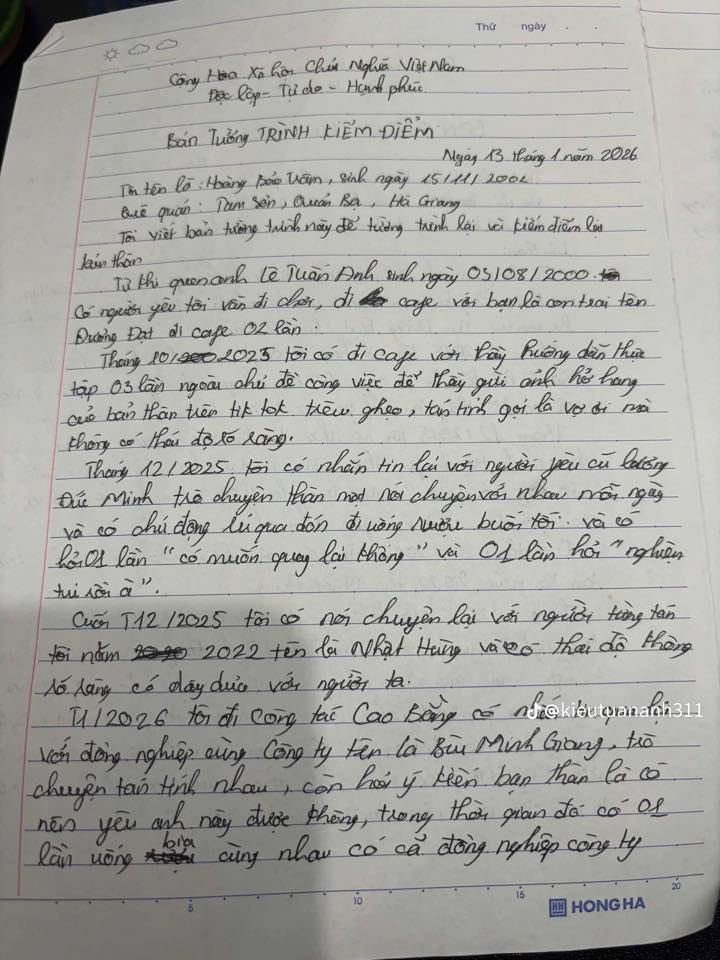 Thứ ngày
Cộng Hòa Xã hội Chủ Nghĩa Việt Nam
Độc lập - Tự do - Hạnh phúc
BẢN TƯỜNG TRÌNH KIỂM ĐIỂM
Ngày 13 tháng 1 năm 2026
Tôi tên là: Hoàng Bảo Trâm, sinh ngày 15/11/2002
Quê quán: Tam Sơn, Quản Bạ, Hà Giang
Tôi viết bản tường trình này để tường trình lại và kiểm điểm lại
bản thân
Từ khi quen anh Lê Tuấn Anh sinh ngày 03/08/2000.
Có người yêu tôi vẫn đi chơi, đi cafe với bạn là con trai tên
Dương Đạt đi cafe 02 lần.
Tháng 10/2025 tôi có đi cafe với thầy hướng dẫn thực
tập 03 lần ngoài chủ đề công việc để thầy gửi ảnh hở hang
của bản thân trên tik tok trêu ghẹo, tán tỉnh gọi là vợ ơi mà
không có thái độ rõ ràng.
Tháng 12/2025 tôi có nhắn tin lại với người yêu cũ Lương
Đức Minh trò chuyện thân mật nói chuyện với nhau mỗi ngày
và có chủ động rủ qua đón đi uống rượu buổi tối và có
hỏi 01 lần "có muốn quay lại không" và 01 lần hỏi "nghiện
tui rồi à".
Cuối T12/2025 tôi có nói chuyện lại với người từng tán
tôi năm 2022 tên là Nhật Hưng và có thái độ không
rõ ràng có dây dưa với người ta.
T1/2026 tôi đi công tác Cao Bằng có nhắn tin qua lại
với đồng nghiệp cùng công ty tên là Bùi Minh Giang, trò
chuyện tán tỉnh nhau, còn hỏi ý kiến bạn thân là có
nên yêu anh này được không, trong thời gian đó có 01
lần uống bia cùng nhau có cả đồng nghiệp công ty
@kieutuananh311
5 10 15 20
HONG HA